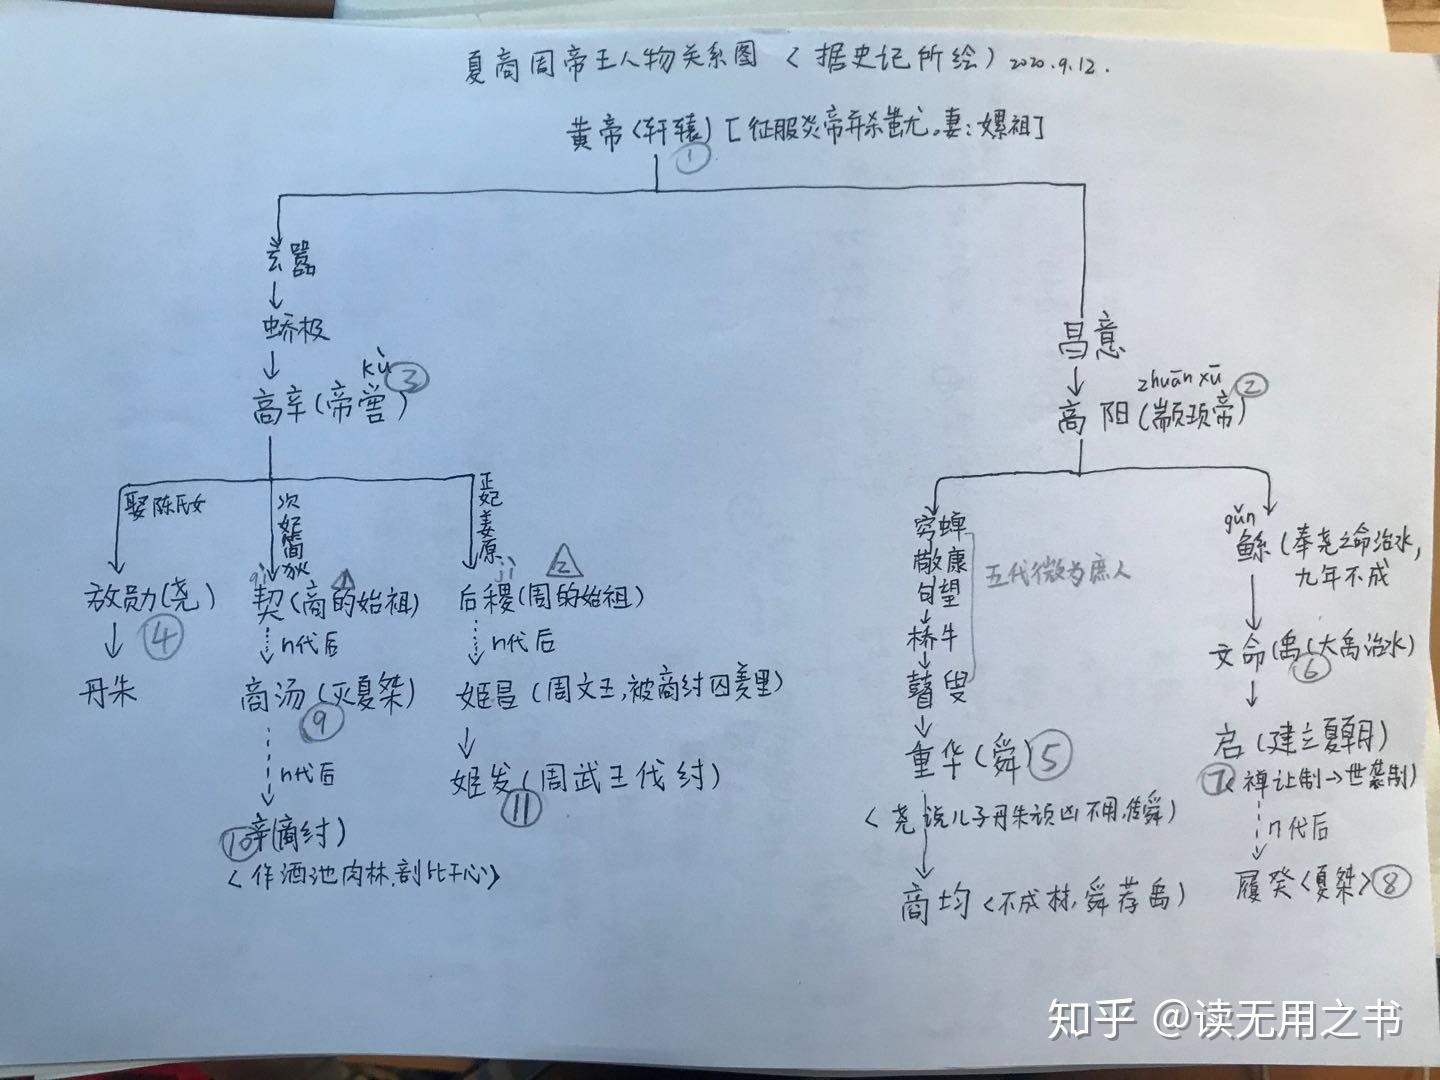 夏商周帝王人物关系图（据史记所绘）2020.9.12.
黄帝（轩辕）[征服炎帝并杀蚩尤。妻：嫘祖]
①
玄嚣
蟜极
kù
③
高辛（帝喾）
昌意
zhuān xū
②
高阳（颛顼帝）
娶陈氏女
次妃简狄
正妃姜原
放勋（尧）
④
丹朱
qì
1
契（商的始祖）
n代后
商汤（灭夏桀）
⑨
n代后
⑩辛（商纣）
（作酒池肉林，剖比干心）
jì
2
后稷（周的始祖）
n代后
姬昌（周文王，被商纣囚羑里）
姬发（周武王伐纣）
⑪
穷蝉
敬康
句望
桥牛
瞽叟
五代微为庶人
重华（舜）⑤
（尧说儿子丹朱顽凶不用，传舜）
商均（不成材，舜荐禹）
gǔn
鲧（奉尧之命治水，
九年不成
文命（禹（大禹治水）
⑥
启（建立夏朝）
⑦（禅让制→世袭制）
n代后
履癸（夏桀）⑧
知乎 @读无用之书